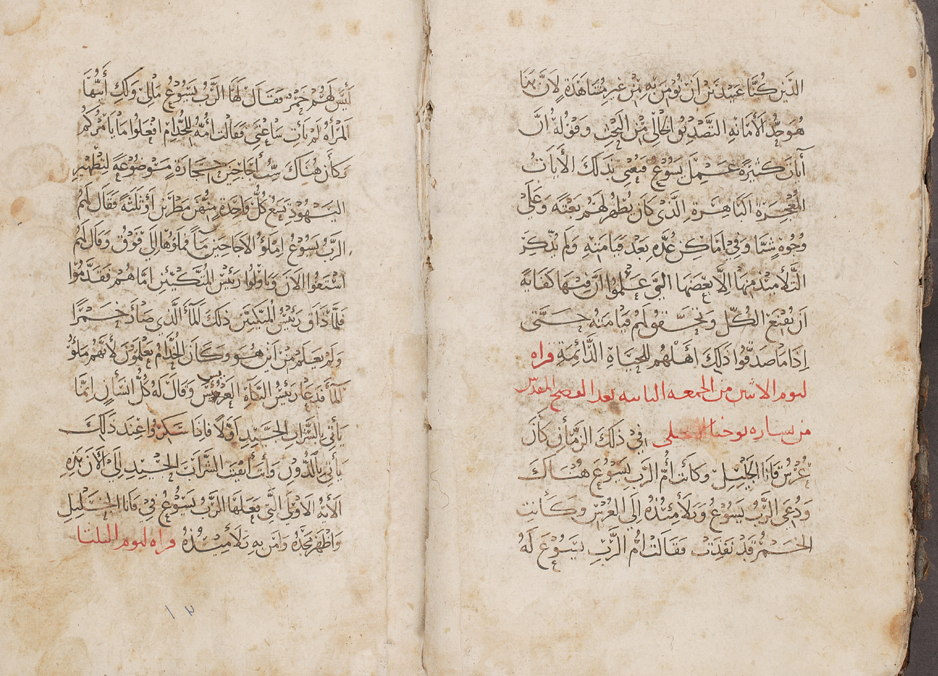 الذين كنا عتيدين ان نؤمن به من غير مشاهدة لان هذا
هو حد الامانه التصديق الخالي من البحث وقوله ان
آيات كثيرة عمل يسوع فنعني بذلك الآيات
المعجزة الباهرة الذي كان يظهر لهم بغتة وعلى
وجوه شتا وفي اماكن عده بعد قيامته ولم تذكر
التلاميذ منها الا بعضها التي علموا ان فيها كفاية
ان تقنع الكل وتحقق لهم قيامته حتى
اذا ما صدقوا ذلك اهلهم للحياة الدائمة قراه
ليوم الاثنين من الجمعه الثانيه بعد الفصح المقدس
من بشاره يوحنا الانجيلي في ذلك الزمان كان
عرس في قانا الجليل وكانت ام الرب يسوع هناك
ودعي الرب يسوع وتلاميذه الى العرس وكانت
الخمر قد نفدت فقالت ام الرب ليسوع له
ليس لهم خمر فقال لها الرب يسوع مالي ولك أيتها
المرأه لم يأت ساعتي فقالت امه للخدام افعلوا ما يامركم
وكان هناك ست أجاجين حجارة موضوعة لتطهير
اليهود تسع كل واحدة منهن مطرين او ثلثه فقال لهم
الرب يسوع املؤ الاجاجين مآ فملوها الى فوق وقال لهم
استقوا الان وناولوا رئيس المتكئين اما هم فقدموا
فلما ذاق رئيس المتكئين ذلك المآ الذي صار خمرًا
ولم يعلم من اين هو وكان الخدام يعلمون لانهم ملؤ
المآ فدعا رئيس المتكاة العريس وقال له كل انسان انما
يأتي بالشراب الجيد أولاً فاذا سكروا عند ذلك
يأتي بالدون وأنت أبقيت الشراب الجيد الى الآن هذه
الآية الاولى التي فعلها الرب يسوع في قانا الجليل
واظهر مجده وامن به تلاميذه قراه ليوم الثلثا
١٣